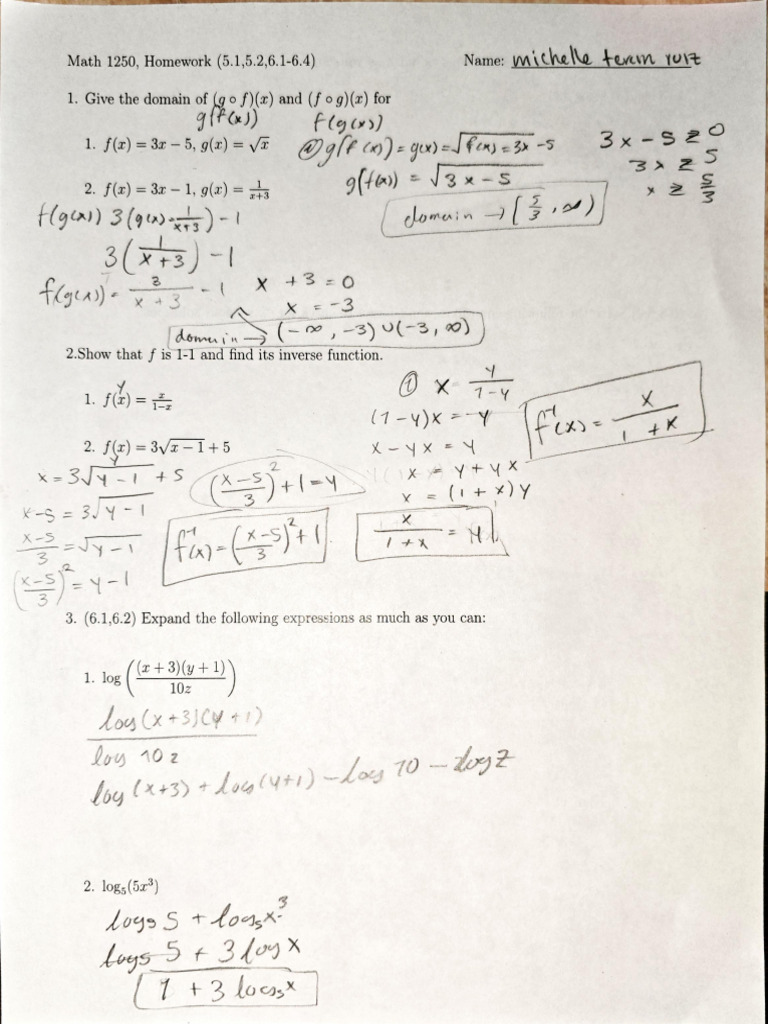 Math 1250, Homework (5.1,5.2,6.1-6.4) Name: michelle teran ruiz
1. Give the domain of (g ∘ f)(x) and (f ∘ g)(x) for
g(f(x)) f(g(x))
1. f(x) = 3x − 5, g(x) = √x
g(f(x)) = g(x) = √f(x) = 3x - 5
g(f(x)) = √3x - 5
domain → [5/3, ∞)
3x - 5 ≥ 0
3x ≥ 5
x ≥ 5/3
2. f(x) = 3x − 1, g(x) = 1/(x+3)
f(g(x)) 3(g(x) = 1/(x+3)) - 1
3(1/(x+3)) - 1
f(g(x)) = 3/(x+3) - 1
x + 3 = 0
x = -3
domain → (-∞, -3) ∪ (-3, ∞)
2.Show that f is 1-1 and find its inverse function.
1. f(x) = x/(1−x)
y
① x = y/(1-y)
(1-y)x = y
x - yx = y
x = y + yx
x = (1 + x)y
x/(1+x) = y
f⁻¹(x) = x/(1+x)
2. f(x) = 3√x − 1 + 5
y
x = 3√y - 1 + 5
x-5 = 3√y - 1
(x-5)/3 = √y - 1
((x-5)/3)² = y - 1
((x-5)/3)² + 1 = y
f⁻¹(x) = ((x-5)/3)² + 1
3. (6.1,6.2) Expand the following expressions as much as you can:
1. log((x + 3)(y + 1)/10z)
log(x+3)(y+1)
log 10z
log(x+3) + log(y+1) - log 10 - log z
2. log₅(5x³)
log₅ 5 + log₅x³
log₅ 5 + 3 log x
1 + 3 log₅x